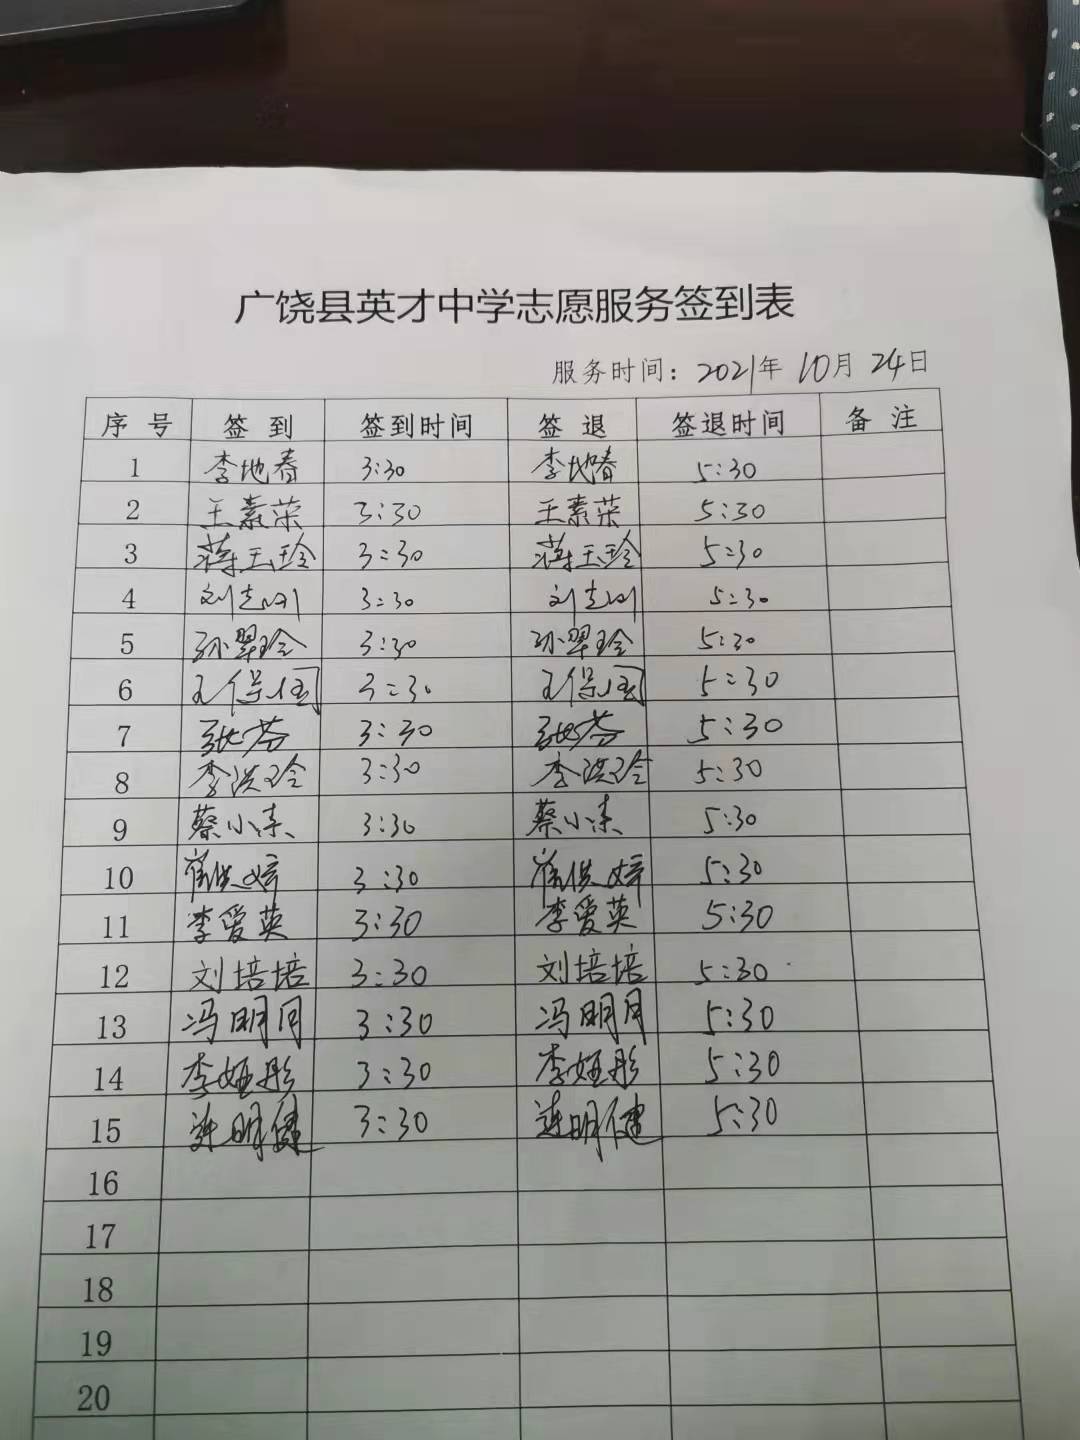 广饶县英才中学志愿服务签到表
服务时间：2021年10月24日
序号 签到 签到时间 签退 签退时间 备注
1 李地春 3:30 李地春 5:30
2 王素荣 3:30 王素荣 5:30
3 蒋玉玲 3:30 蒋玉玲 5:30
4 刘志刚 3:30 刘志刚 5:30
5 孙翠玲 3:30 孙翠玲 5:30
6 王保国 3:30 王保国 5:30
7 张芬 3:30 张芬 5:30
8 李洪玲 3:30 李洪玲 5:30
9 蔡小 3:30 蔡小 5:30
10 崔 婷 3:30 崔 婷 5:30
11 李爱英 3:30 李爱英 5:30
12 刘培培 3:30 刘培培 5:30
13 冯明月 3:30 冯明月 5:30
14 李 彤 3:30 李 彤 5:30
15 明健 3:30 明健 5:30
16
17
18
19
20